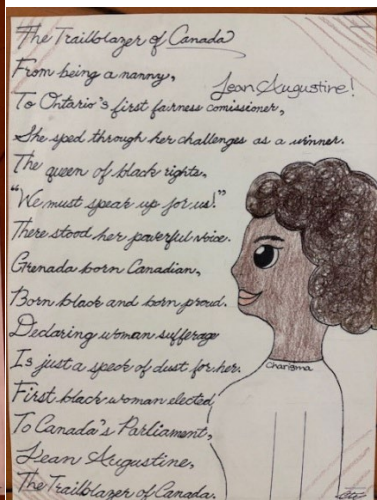 The Trailblazer of Canada
Jean Augustine!
From being a nanny,
To Ontario's first fairness comissioner,
She sped through her challenges as a winner.
The queen of black rights,
"We must speak up for us!"
There stood her powerful voice.
Grenada born Canadian,
Born black and born proud.
Declaring woman sufferage
Is just a speck of dust for her.
First black woman elected
To Canada's Parliament,
Jean Augustine,
The Trailblazer of Canada.
Charisma